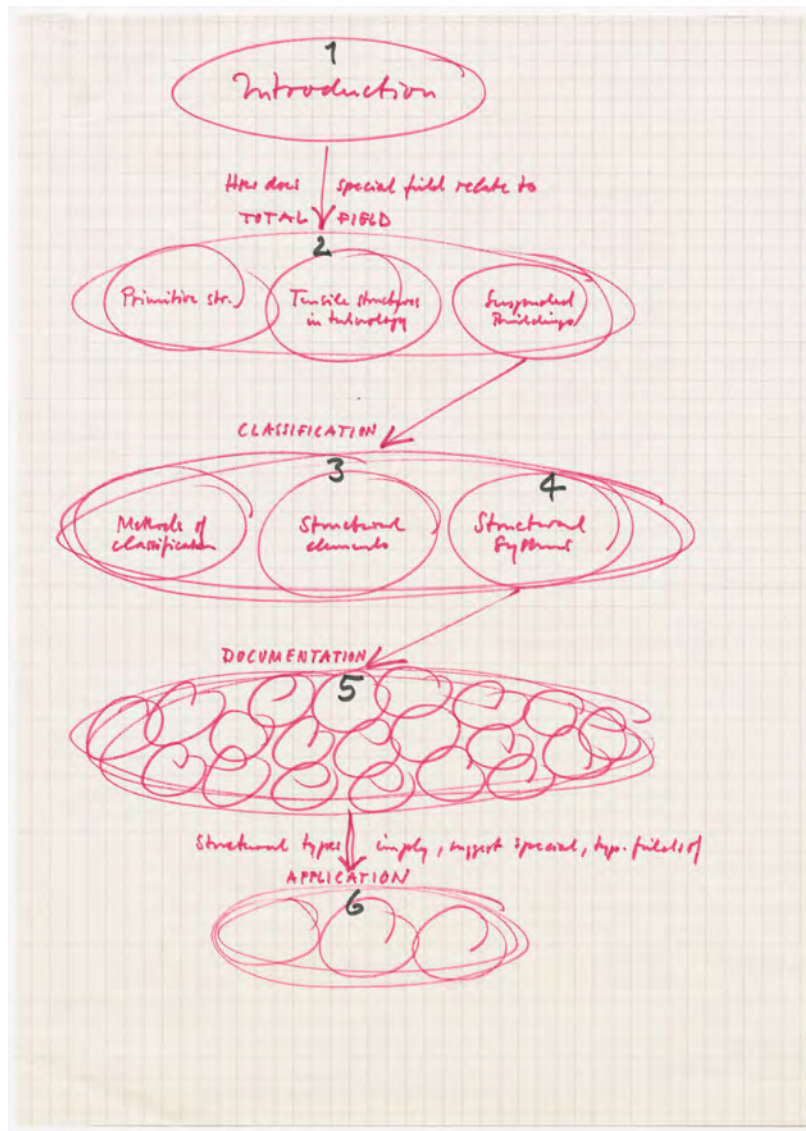 1
Introduction
How does special field relate to
TOTAL FIELD
2
Primitive str.
Tensile structures
in technology
Suspended
Buildings
CLASSIFICATION
3
4
Methods of
classification
Structural
elements
Structural
Systems
DOCUMENTATION
5
Structural types imply, suggest special, typ. fields of
APPLICATION
6